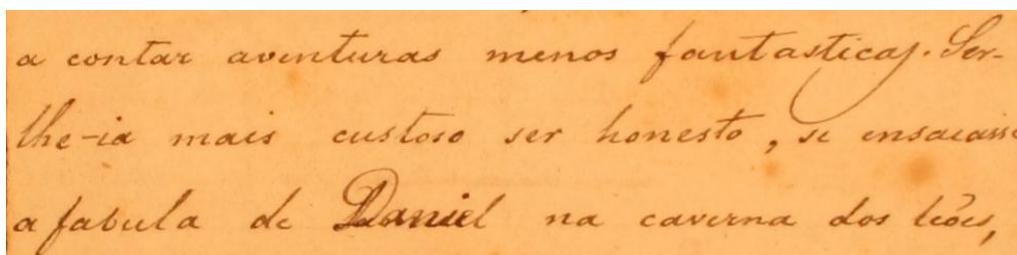 a contar aventuras menos fantasticas. Ser-
lhe-ia mais custoso ser honesto, se ensaiasse
a fabula de Daniel na caverna dos leões,